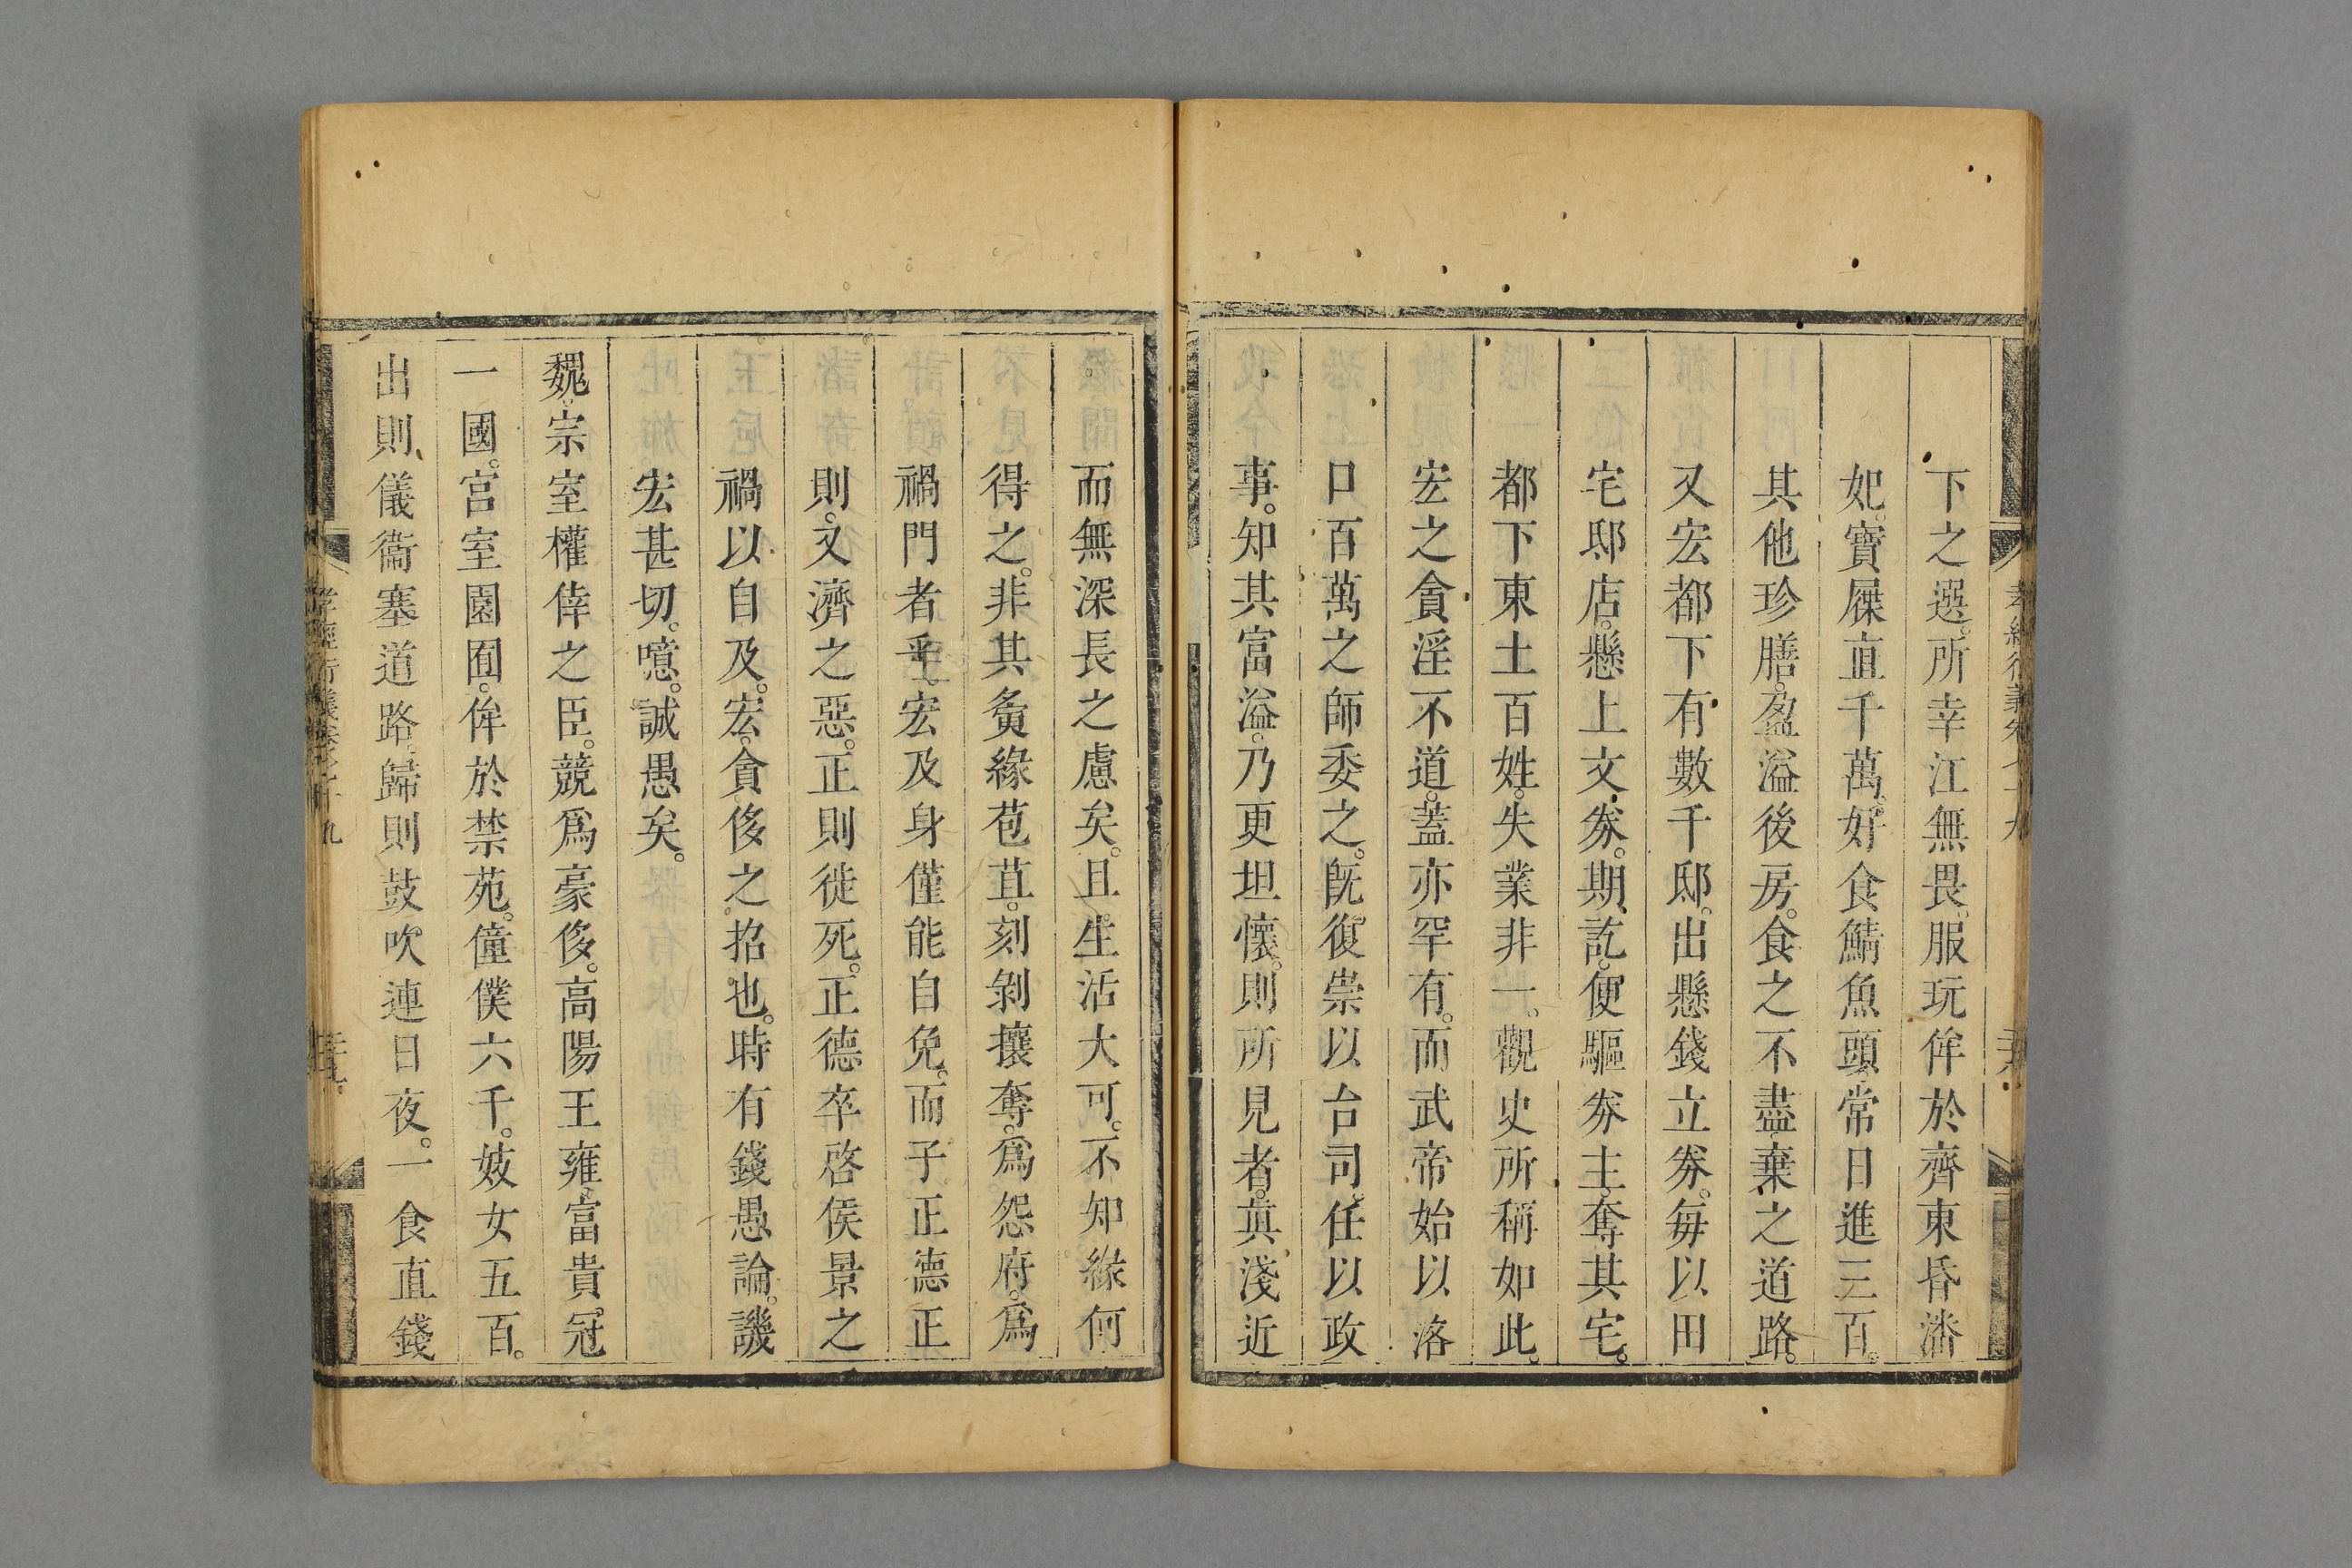 下之選。所幸江無畏。服玩侔於齊東昏潘
妃。寶屧直千萬。好食鯖魚頭常日進三百。
其他珍膳。盈溢後房。食之不盡棄之道路。
又宏都下有數千邸。出懸錢立券。每以田
宅邸店。懸上文券。期訖。便驅券主。奪其宅。
都下東土百姓。失業非一。觀史所稱如此。
宏之貪淫不道。蓋亦罕有。而武帝始以洛
口百萬之師委之。旣復崇以台司。任以政
事。知其富溢。乃更坦懷。則所見者。眞淺近
孝經衍義卷七十九
而無深長之慮矣。且生活大可。不知緣何
得之。非其夤緣苞苴。刻剝攘奪。爲怨府。爲
禍門者乎。宏及身僅能自免。而子正德正
則。又濟之惡。正則徙死。正德卒啓侯景之
禍以自及。宏貪侈之招也。時有錢愚論。譏
宏甚切。噫。誠愚矣。
魏。宗室權倖之臣。競爲豪侈。高陽王雍。富貴。冠
一國。宮室園囿。侔於禁苑。僮僕六千。妓女五百。
出則儀衞塞道路。歸則鼓吹連日夜。一食直錢
孝經衍義卷七十九